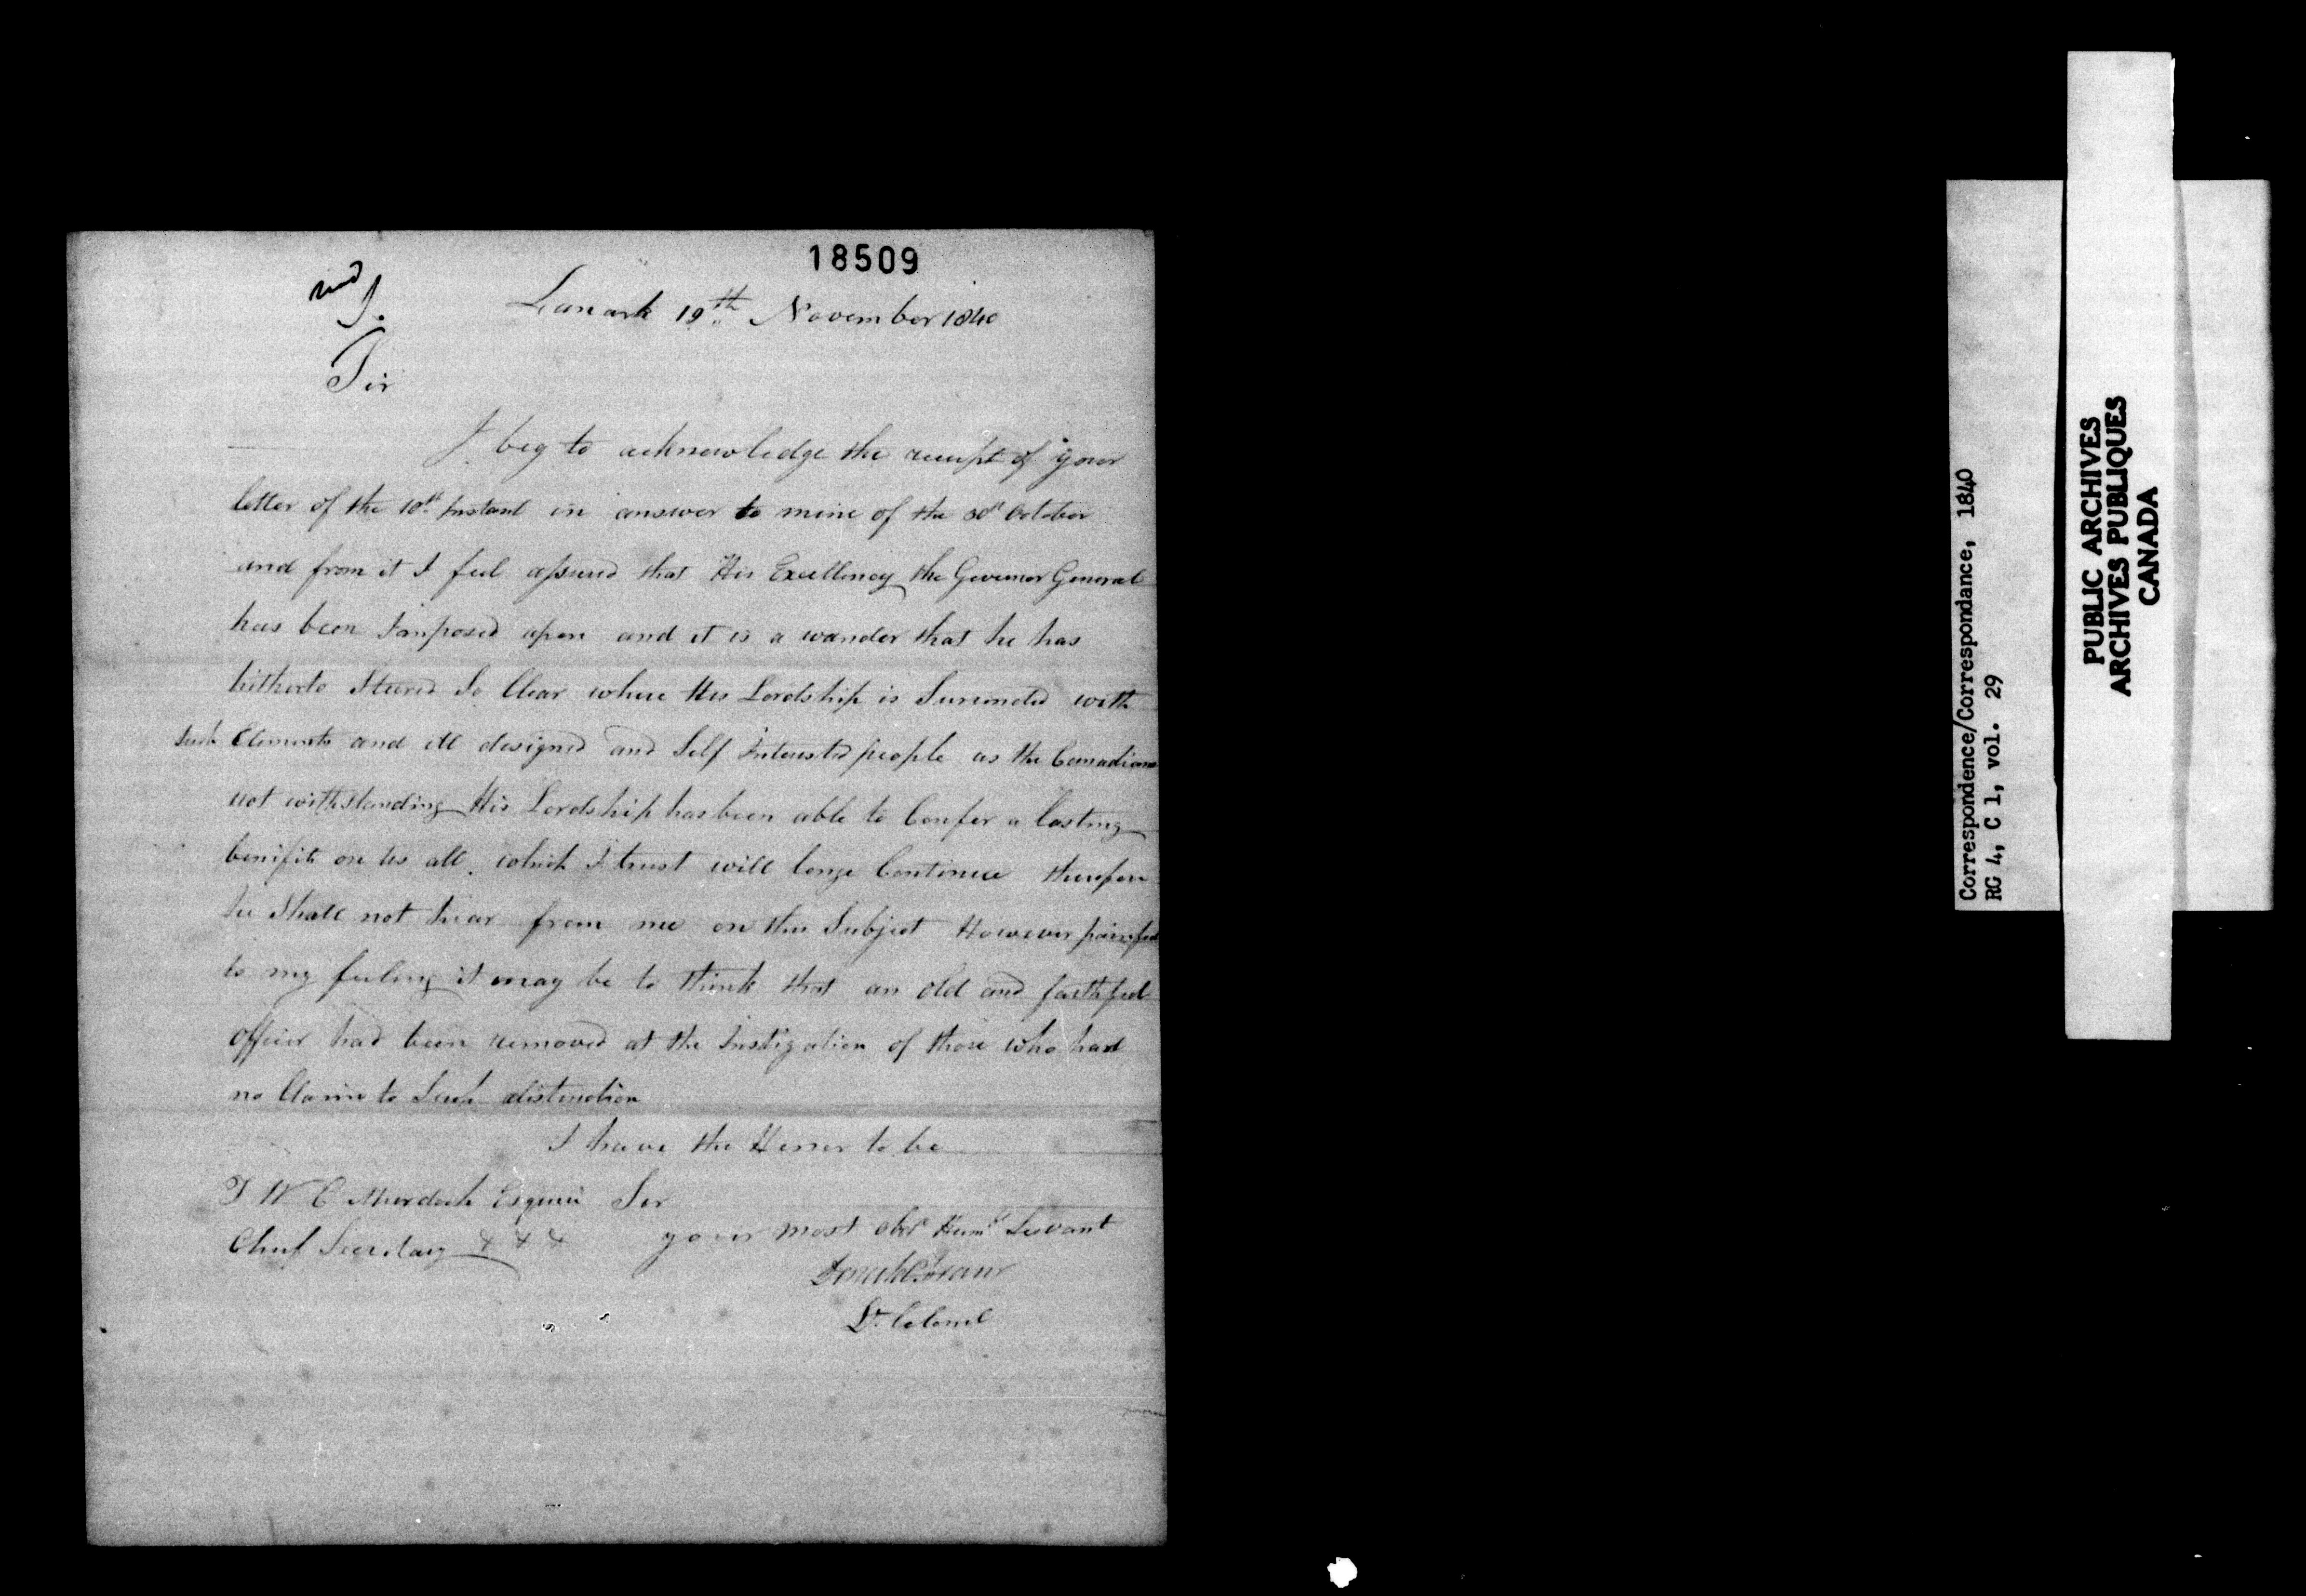 18509
Lanark 19th November 1840
Sir
I beg to acknowledge the receipt of your
letter of the 10th Instant in answer to mine of the 30th October
and from it I feel assured that His Excellency the Govenor General
has been Imposed upon and it is a wander that he has
hitherto Steered So Clear where His Lordship is Surrounded with
Such Elements and ill designed and Self Interested people as the Canadians
not withstanding His Lordship has been able to Confer a lasting
benifit on us all. which I trust will longe Continue therefore
he Shall not hear from me on this Subject However painful
to my feeling it may be to think that an Old and faithful
Officer had been removed at the Instigation of those who had
no Claim to Such distinction
I have the Honor to be
T W C Murdoch Esquire Sir
Chief Secretary & & &
your most obdt Huml Servant
Donald Fraser
Lt. Colonel
Correspondence/Correspondance, 1840
RG 4, C 1, vol. 29
PUBLIC ARCHIVES
ARCHIVES PUBLIQUES
CANADA